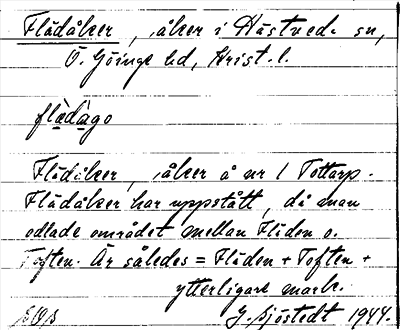 Flädåker, åker i Hästveda sn,
Ö. Göinge hd, Krist. l.
flàdàgo
Flädåker, åker å nr 1 Tottarp.
Flädåker har uppstått, då man
odlade området mellan Fläden o.
Toften. Är således = Fläden + Toften +
ytterligare mark.
J. Sjöstedt 1944.